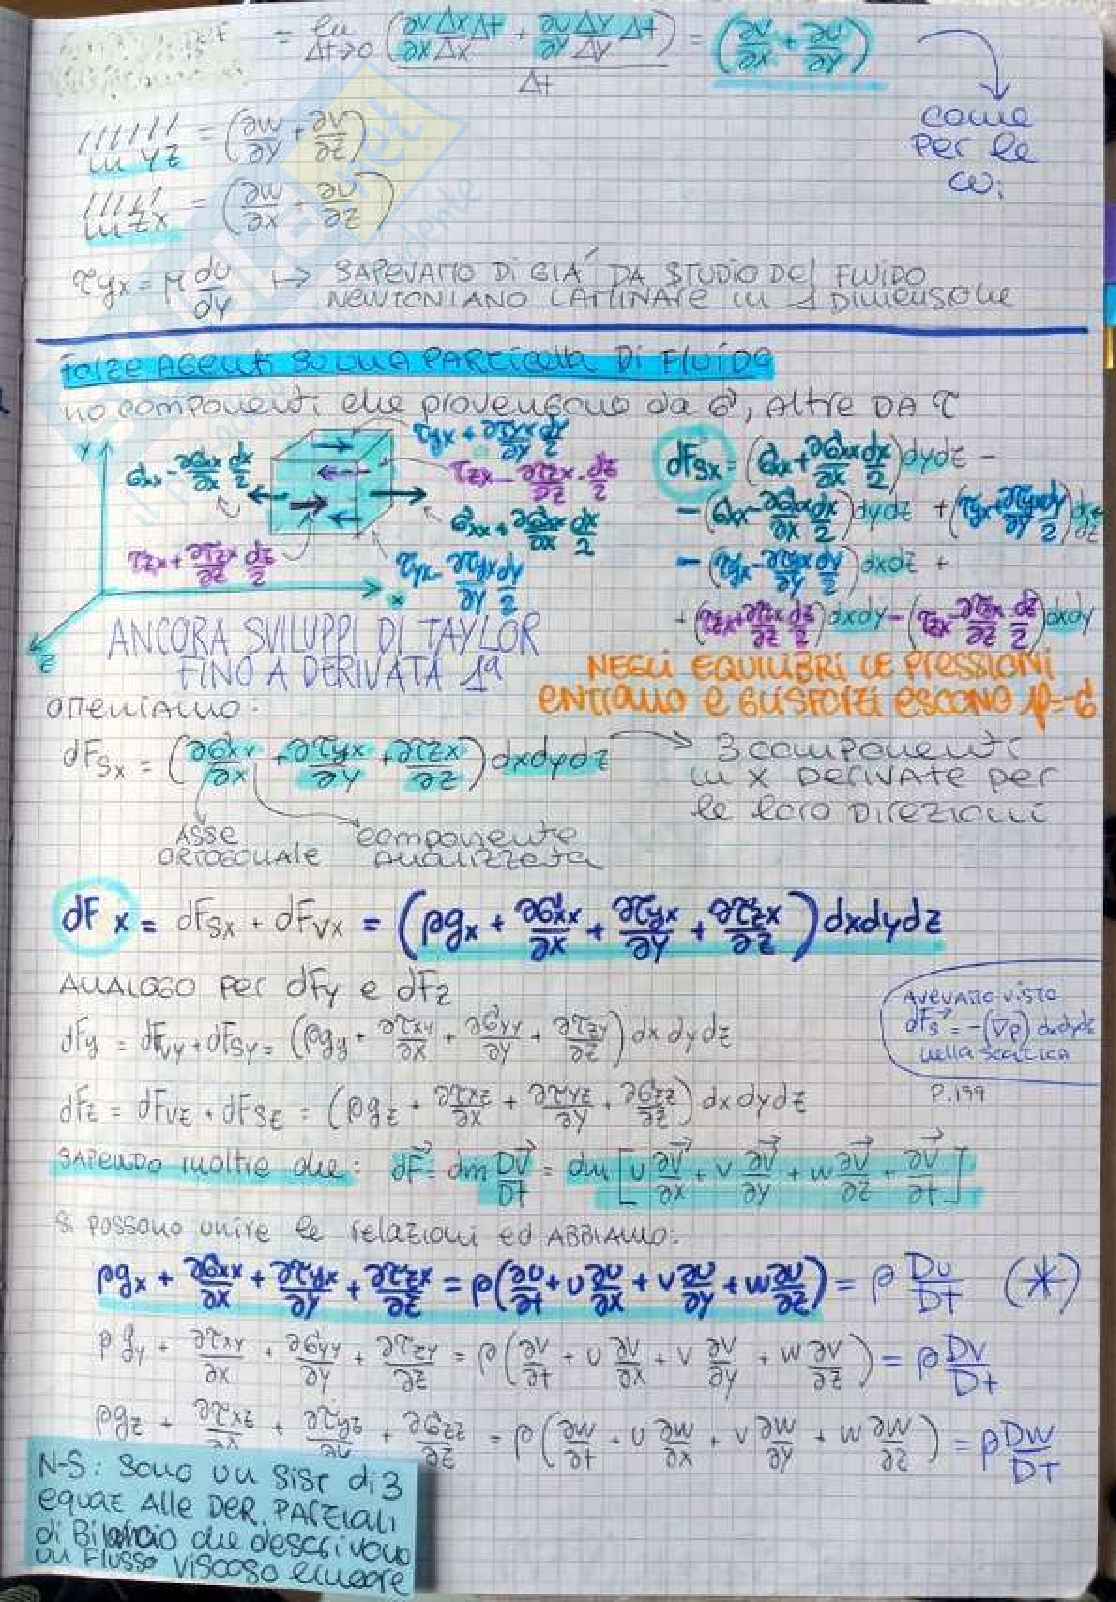 = lim Δt→0 (∂v/∂x Δx/Δx Δt + ∂u/∂y Δy/Δy Δt)/Δt = (∂v/∂x + ∂u/∂y)
come
per le
ωi
////// in yz = (∂w/∂y + ∂v/∂z)
///// in zx = (∂w/∂x + ∂u/∂z)
τyx = μ du/dy ↦ SAPEVAMO DI GIÀ DA STUDIO DEL FLUIDO
NEWTONIANO LAMINARE in 1 DIMENSIONE
FORZE AGENTI SU UNA PARTICELLA DI FLUIDO
HO componenti che provengono da σ, altre DA τ
y
x
z
τyx + ∂τyx/∂y dy/2
σxx - ∂σxx/∂x dx/2
τzx - ∂τzx/∂z dz/2
σxx + ∂σxx/∂x dx/2
τzx + ∂τzx/∂z dz/2
τyx - ∂τyx/∂y dy/2
dFsx = (σxx + ∂σxx/∂x dx/2) dydz -
- (σxx - ∂σxx/∂x dx/2) dydz + (τyx + ∂τyx/∂y dy/2) dxdz
- (τyx - ∂τyx/∂y dy/2) dxdz +
+ (τzx + ∂τzx/∂z dz/2) dxdy - (τzx - ∂τzx/∂z dz/2) dxdy
ANCORA SVILUPPI DI TAYLOR
FINO A DERIVATA 1ª
NEGLI EQUILIBRI LE PRESSIONI
ENTRANO E GLI SFORZI ESCONO p=-σ
OTTENIAMO:
dFsx = (∂σxx/∂x + ∂τyx/∂y + ∂τzx/∂z) dxdydz
3 componenti
in x DERIVATE PER
le loro DIREZIONI
ASSE
ORTOGONALE
componente
analizzata
dFx = dFsx + dFvx = (ρgx + ∂σxx/∂x + ∂τyx/∂y + ∂τzx/∂z) dxdydz
ANALOGO per dFy e dFz
dFy = dFvy + dFsy = (ρgy + ∂τxy/∂x + ∂σyy/∂y + ∂τzy/∂z) dx dy dz
AVEVAMO VISTO
dFs = -(∇p) dxdydz
nella STATICA
P.199
dFz = dFvz + dFsz = (ρgz + ∂τxz/∂x + ∂τyz/∂y + ∂σzz/∂z) dxdydz
SAPENDO inoltre che: dF = dm DV/Dt = dm [u ∂V/∂x + v ∂V/∂y + w ∂V/∂z + ∂V/∂t]
Si possono unire le relazioni ed ABBIAMO:
ρgx + ∂σxx/∂x + ∂τyx/∂y + ∂τzx/∂z = ρ(∂u/∂t + u ∂u/∂x + v ∂u/∂y + w ∂u/∂z) = ρ Du/Dt (*)
ρgy + ∂τxy/∂x + ∂σyy/∂y + ∂τzy/∂z = ρ(∂v/∂t + u ∂v/∂x + v ∂v/∂y + w ∂v/∂z) = ρ Dv/Dt
ρgz + ∂τxz/∂x + ∂τyz/∂y + ∂σzz/∂z = ρ(∂w/∂t + u ∂w/∂x + v ∂w/∂y + w ∂w/∂z) = ρ Dw/Dt
N-S: sono un sist di 3
equaz Alle DER. PARZIALI
di Bilancio che descrivono
un flusso viscoso lineare